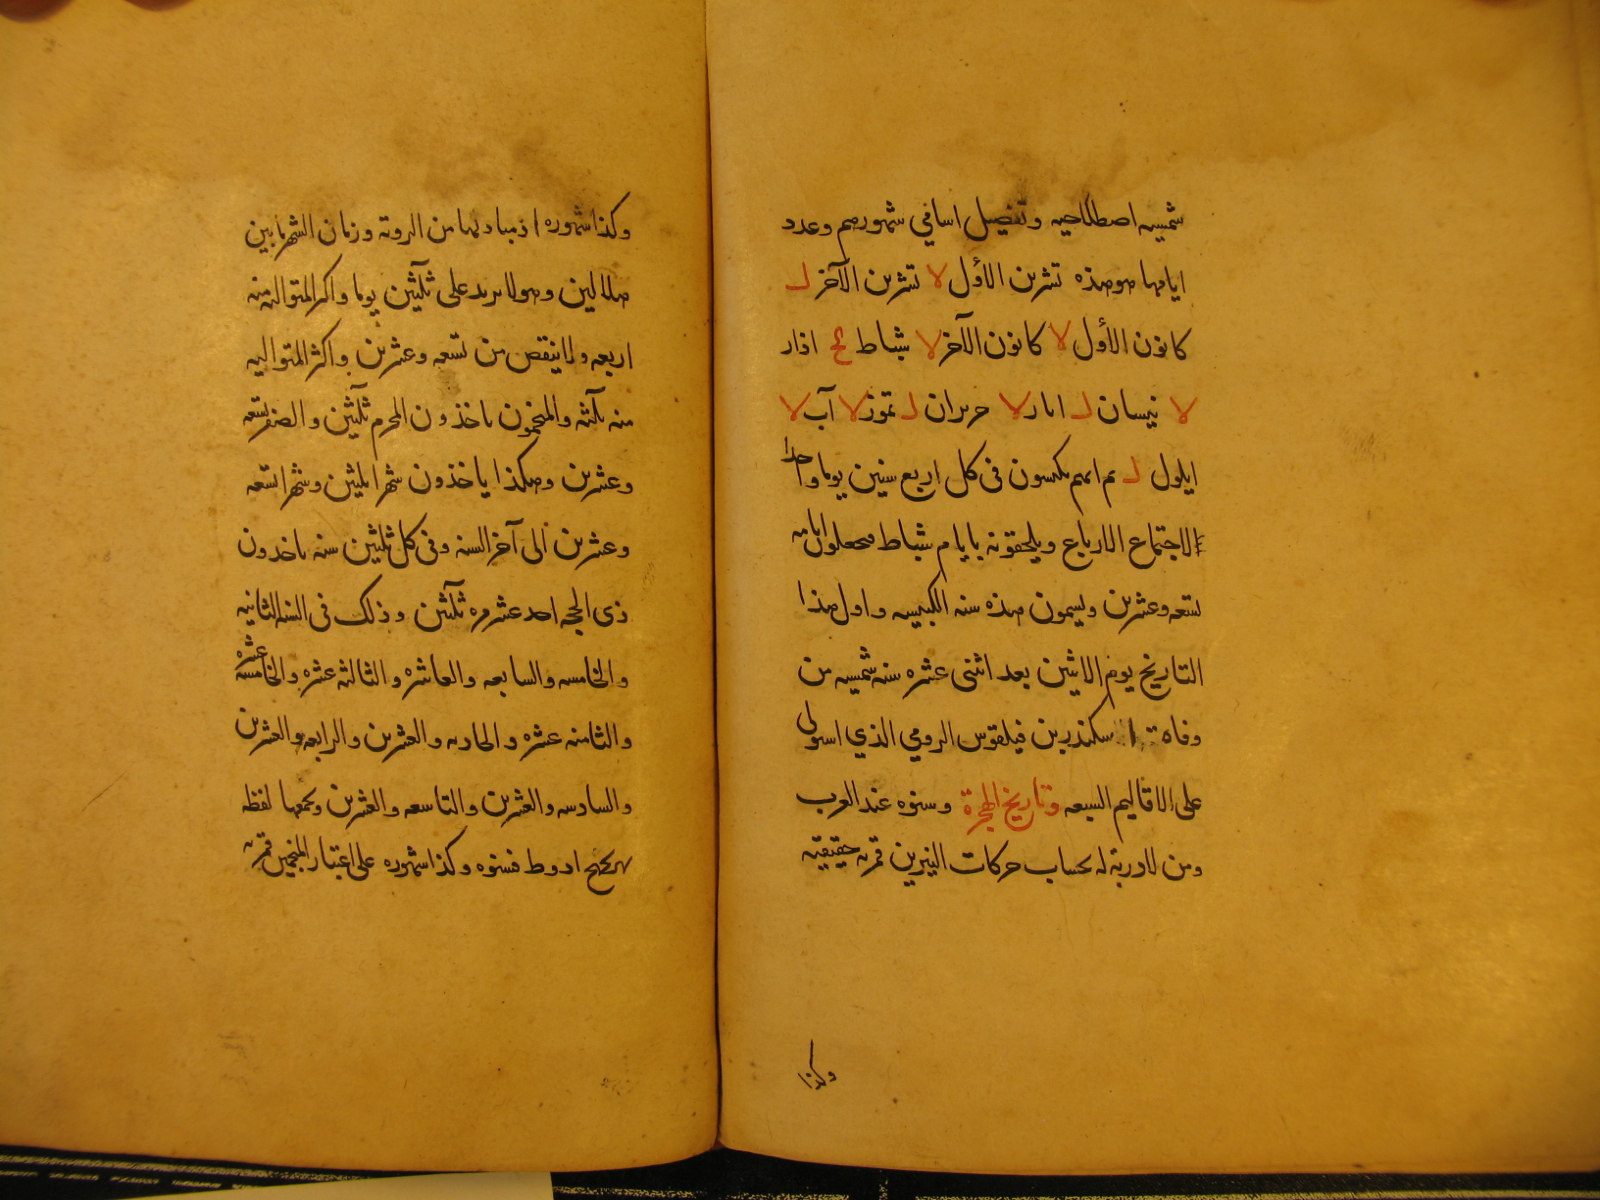 شمسيه اصطلاحيه وتفصيل اسافي شهورهم وعدد
ايامها هوهذه تشرين الاول لا تشرين الآخر ل
كانون الاول لا كانون الآخر لا شباط كح اذار
لا نيسان ل ايار لا حزيران ل تموز لا آب لا
ايلول ل ثم انهم يكبسون فى كل اربع سنين يوما واحدا
لاجتماع الارباع ويلحقونه بايام شباط فيجعلون ايامه
تسعه وعشرين ويسمون هذه سنه الكبيسه واول هذا
التاريخ يوم الاثنين بعد اثنى عشره سنه شمسيه من
وفاة اسكندر بن فيلقوس الرومي الذي استولى
على الاقاليم السبعه وتاريخ الهجرة وسنوه عند العرب
ومن لا دربة له بحساب حركات النيرين قمريه حقيقيه
وكذا
وكذا شهوره اذ مباديها من الروية وزمان الشهر ما بين
هلالين وهو لا يزيد على ثلثين يوما واكثر المتواليه منه
اربعه ولا ينقص من تسعه وعشرين واكثر المتواليه
منه ثلثه والمنجمون ياخذون المحرم ثلثين والصفر تسعه
وعشرين وهكذا ياخذون شهرا ثلثين وشهرا تسعه
وعشرين الى آخر السنه وفى كل ثلثين سنه ياخذون
ذى الحجه احد عشر مره ثلثين وذلك فى السنه الثانيه
والخامسه والسابعه والعاشره والثالثه عشره والخامسه عشره
والثامنه عشره والحاديه والعشرين والرابعه والعشرين
والسادسه والعشرين والتاسعه والعشرين وتجمعها لفظه
بهزيجح ادوط فسنوه وكذا شهوره على اعتبار المنجمين قمريه